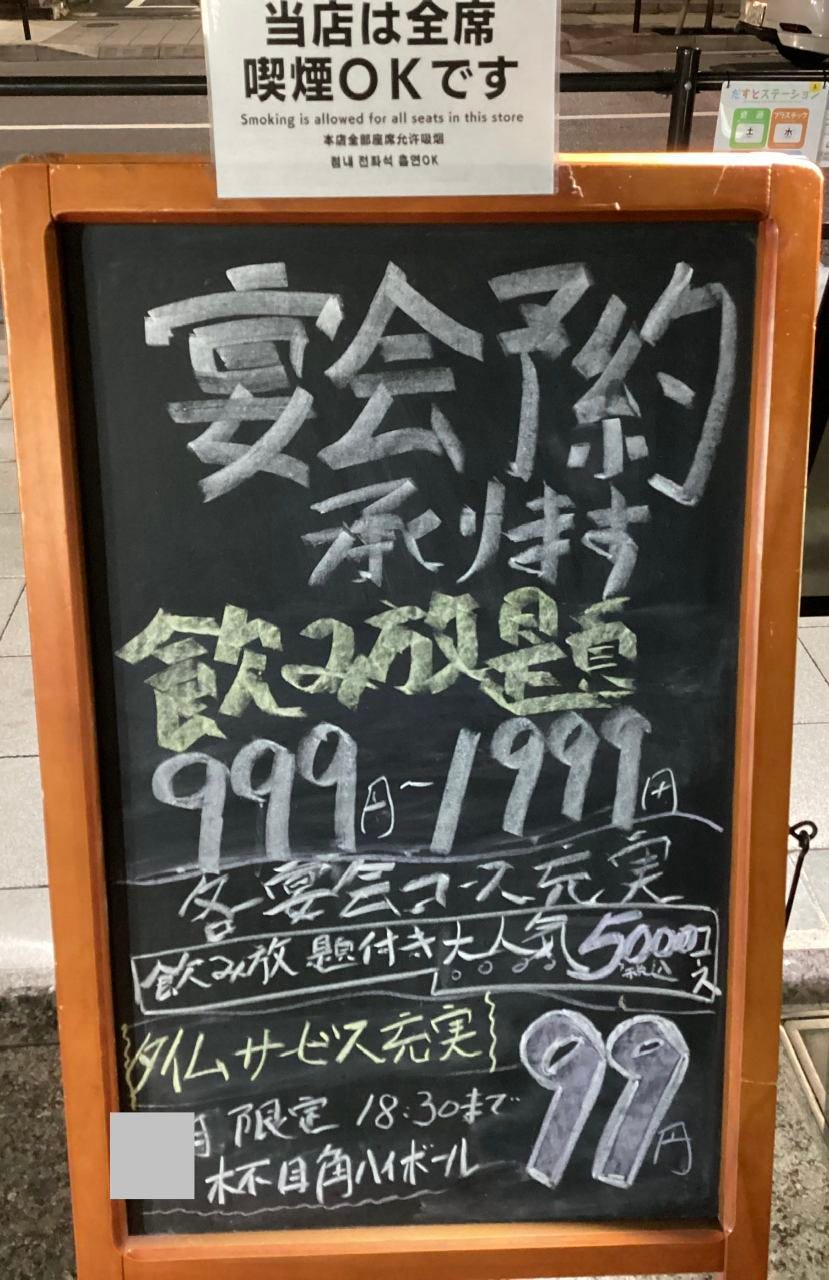 当店は全席
喫煙OKです
Smoking is allowed for all seats in this store
本店全部座席允许吸烟
점내 전좌석 흡연OK
だすとステーション
資源
プラスチック
土
水
宴会予約
承ります
飲み放題
999円~1999円
各宴会コース充実
飲み放題付き大人気5000円コース
税込
タイムサービス充実
限定 18:30まで
杯目角ハイボール
99円